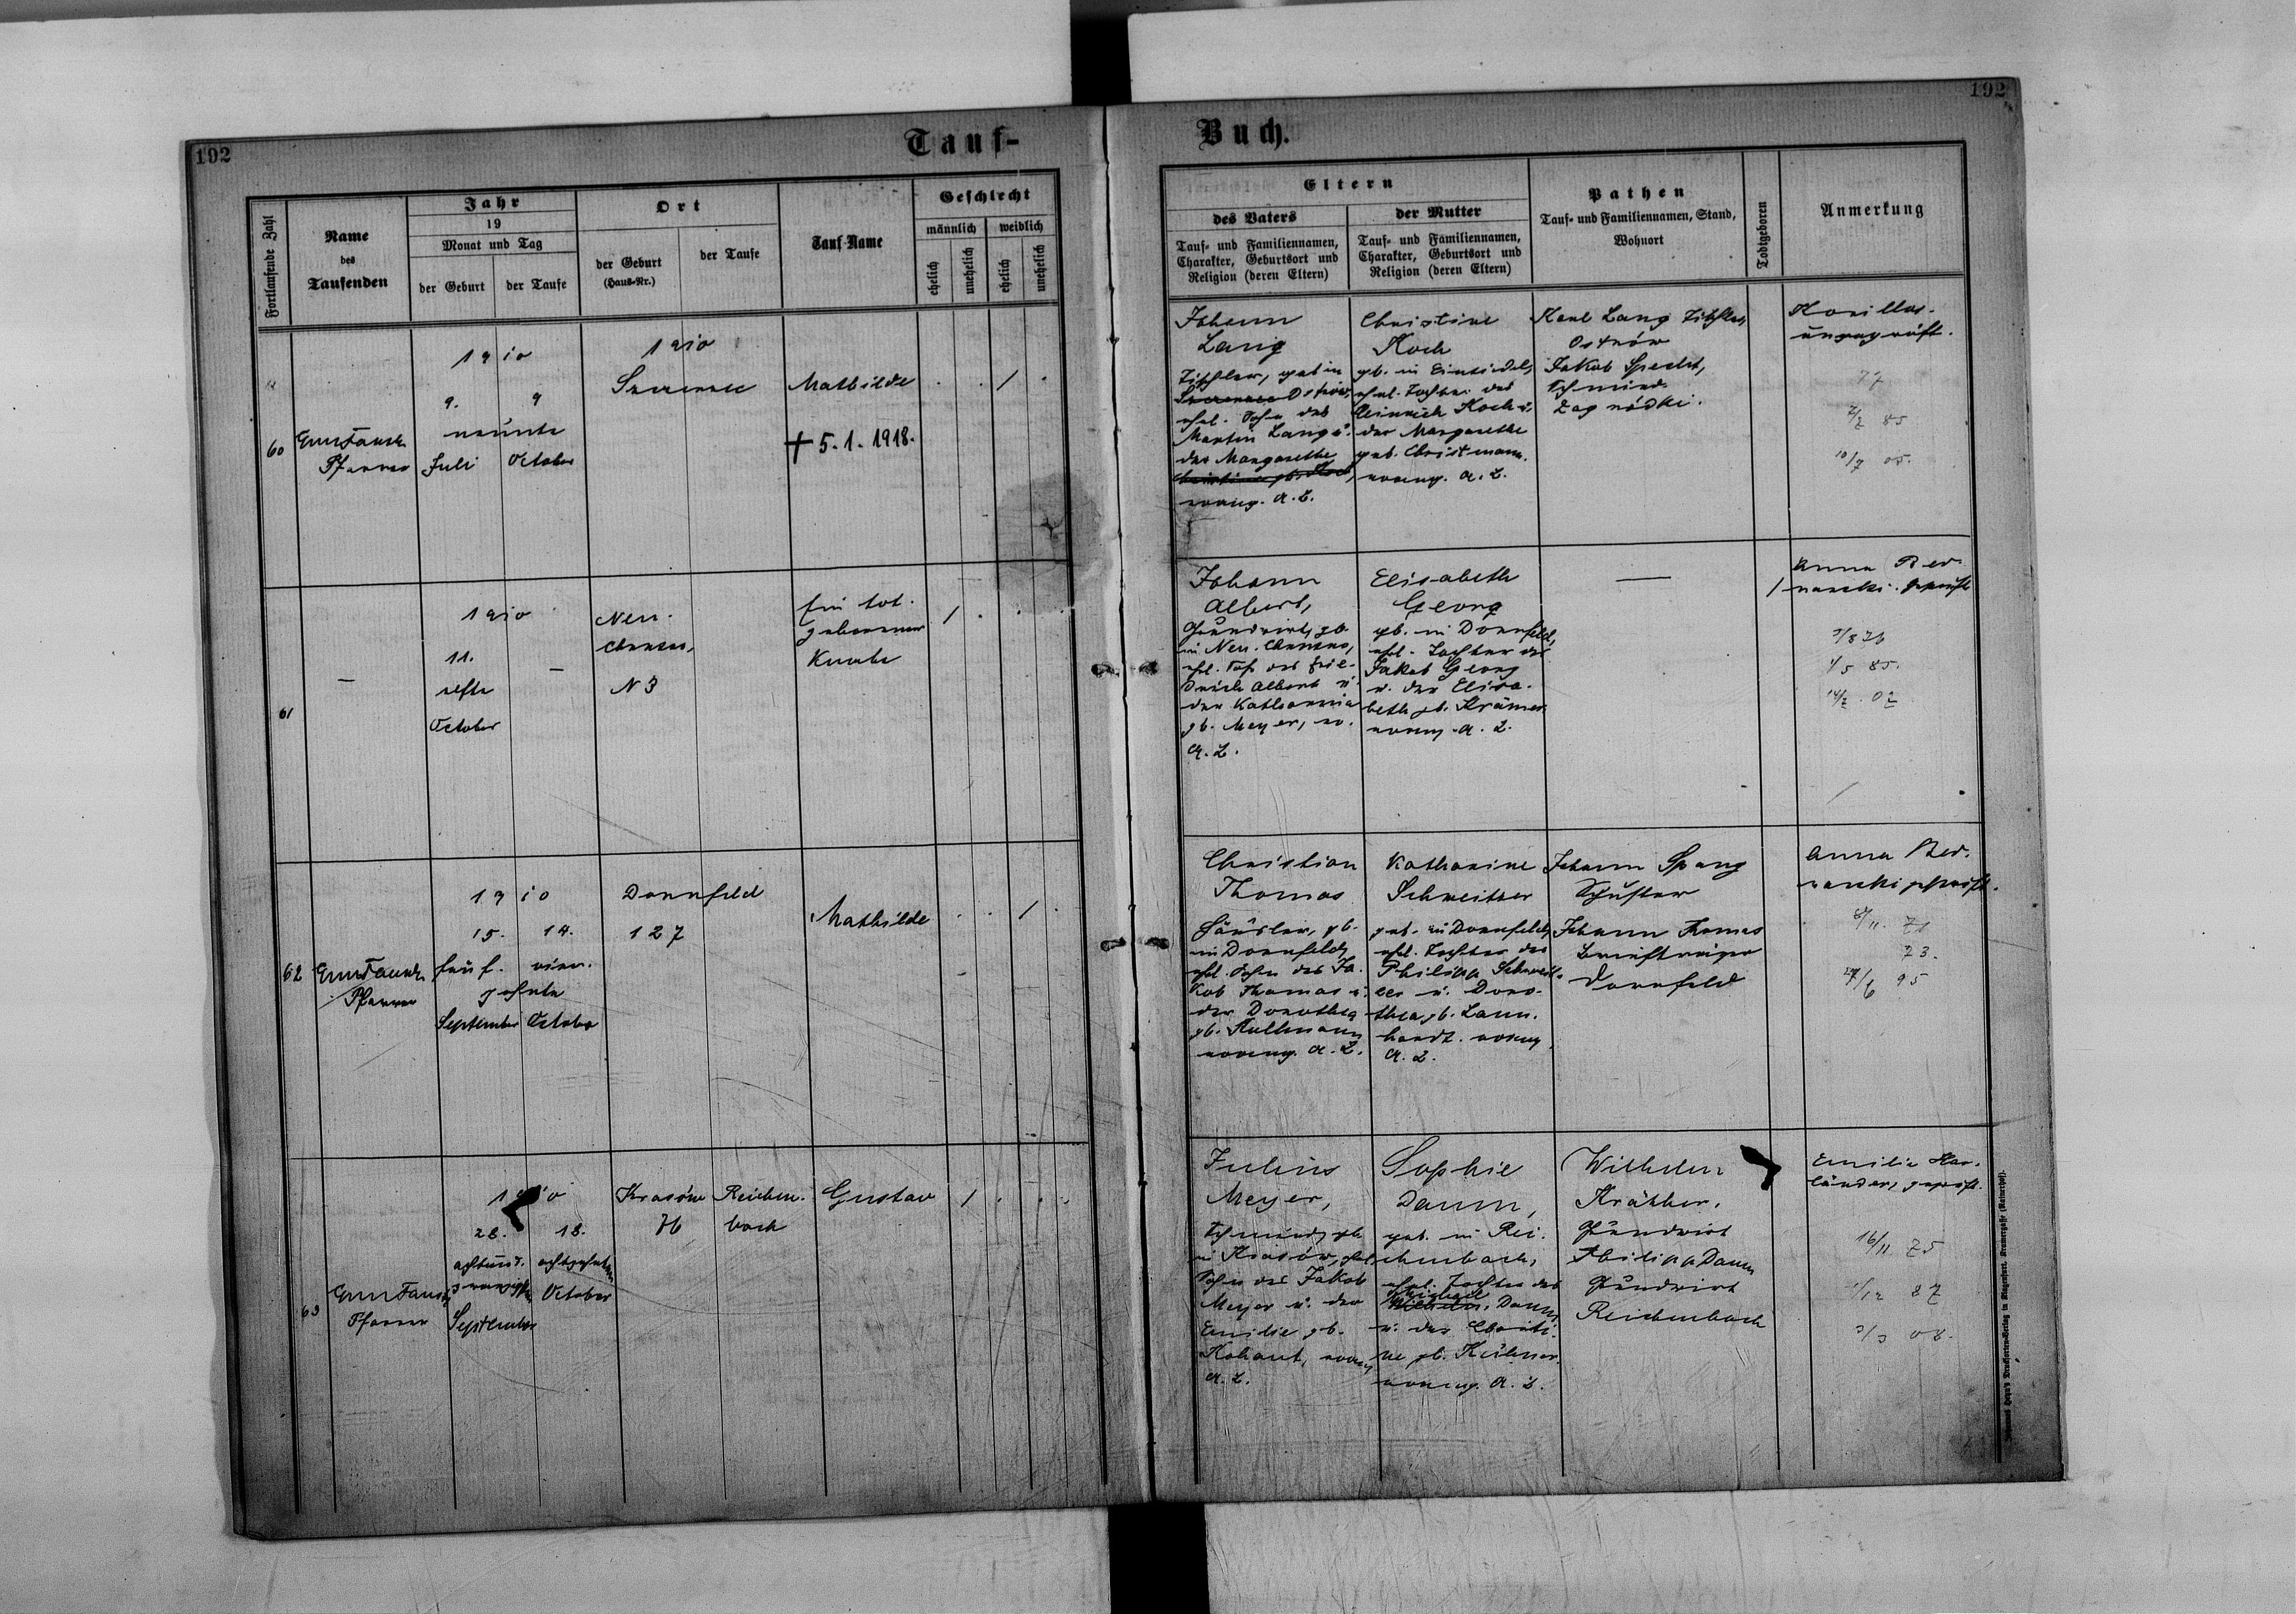 192
Tauf-
Fortlaufende Zahl
Name
des
Taufenden
Jahr
19
Monat und Tag
der Geburt
der Taufe
Ort
der Geburt
(Haus-Nr.)
der Taufe
Tauf-Name
Geschlecht
männlich
weiblich
ehelich
unehelich
ehelich
unehelich
60
Pfarrer
1910
9. 9
neunte
Juli October
1910
Mathilde
† 5.1.1918.
. . / .
61
—
1910
11.
elfte
October
—
Neu-
Chrusno,
N 3
Ein tot-
geborener
Knabe
/ . . .
62
Pfarrer
1910
15. 14.
fünf- vier-
zehnte
September October
Dornfeld
127
Mathilde
. . / .
63
Pfarrer
1910
28. 18.
achtund- achtzehnten
zwanzigste October
September
Krasów Reichen-
76 bach
Gustav
/ . . .
192
Buch.
Eltern
des Vaters
Tauf- und Familiennamen,
Charakter, Geburtsort und
Religion (deren Eltern)
der Mutter
Tauf- und Familiennamen,
Charakter, Geburtsort und
Religion (deren Eltern)
Pathen
Tauf- und Familiennamen, Stand,
Wohnort
Todtgeboren
Anmerkung
Johann
Lang
Tischler, geb. in
Ostrów,
ehel. Sohn des
Martin Lang u.
der Margarethe
evang. A. B.
Christine
Koch
gb. in Einsiedel,
ehel. Tochter des
Heinrich Koch u.
der Margarethe
geb. Christmann.
evang. A. B.
Karl Lang Tischler
Ostrów
Jakob Specht,
Schmied
Zagródki.
ungeprüft.
77
7/2 85
10/7 05.
Johann
Albert,
Grundwirt, gb.
in Neu-Chrusno,
ehl. Sohn des Frie-
drich Albert u.
der Katharina
gb. Meyer, ev.
A. B.
Elisabeth
Georg
gb. in Dornfeld,
ehl. Tochter des
Jakob Georg
u. der Elisa-
beth gb. Krämer.
evang. A. B.
—
/
Anna Bed-
narski. geprüft
7/8 76
1/5 85.
14/2 02
Christian
Thomas
Häusler, gb.
in Dornfeld,
ehl. Sohn des Ja-
kob Thomas u.
der Dorothea
gb. Kullmann
evang. A. B.
Katharine
Schweitzer
geb. in Dornfeld,
ehl. Tochter des
Philipp Schweit-
zer u. Doro-
thea gb. Laun-
hardt. evang.
A. B.
Johann Spang
Schuster
Johann Thomas
Briefträger
Dornfeld
Anna Bed-
narski geprüft.
8/11 71
73.
27/6 95
Julius
Meyer,
Schmied, gb.
in Krasów, ehl.
Sohn des Jakob
Meyer u. der
Emilie gb.
Kohaut, evang.
A. B.
Sophie
Daum,
geb. in Rei-
chenbach,
ehel. Tochter des
Michael
Daum
u. der Christi-
ne gb. Kühner.
evang. A. B.
Wilhelm
Kräther,
Grundwirt
Philipp Daum
Grundwirt
Reichenbach
Emilie Har-
länder, geprüft.
16/11 75
1/12 87
3/3 08.